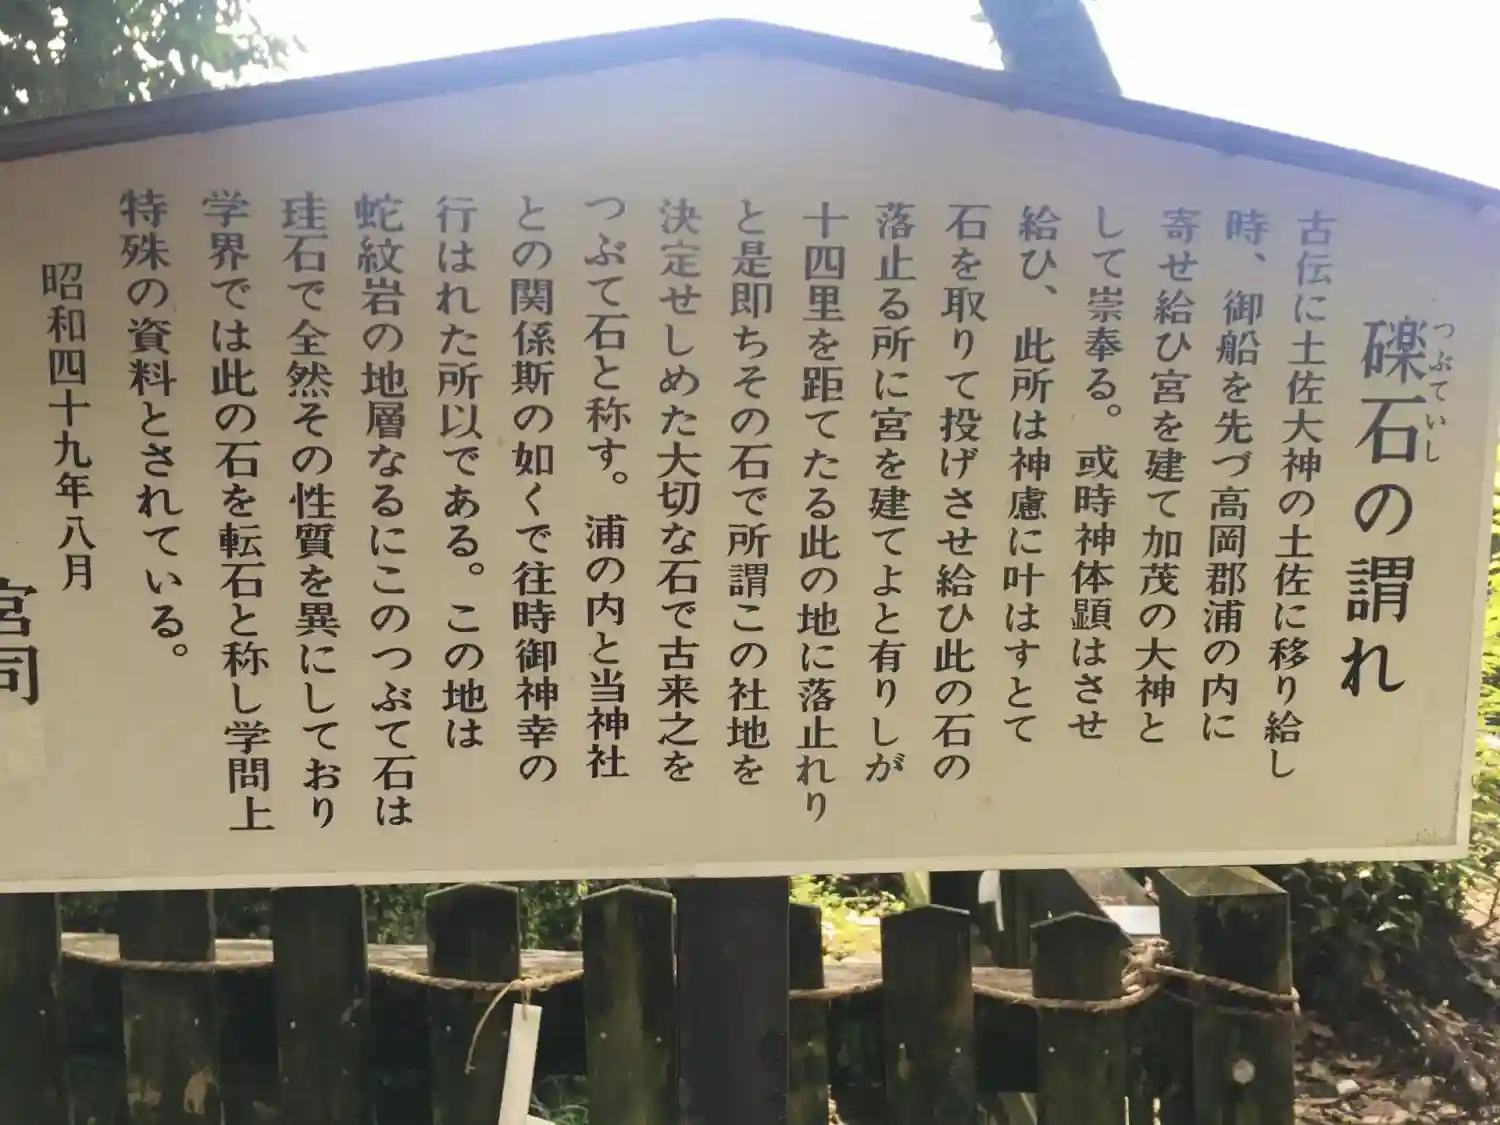 礫石の謂れ
つぶていし
古伝に土佐大神の土佐に移り給し
時、御船を先づ高岡郡浦の内に
寄せ給ひ宮を建て加茂の大神と
して崇奉る。或時神体顕はさせ
給ひ、此所は神慮に叶はすとて
石を取りて投げさせ給ひ此の石の
落止る所に宮を建てよと有りしが
十四里を距てたる此の地に落止れり
と是即ちその石で所謂この社地を
決定せしめた大切な石で古来之を
つぶて石と称す。浦の内と当神社
との関係斯の如くで往時御神幸の
行はれた所以である。この地は
蛇紋岩の地層なるにこのつぶて石は
珪石で全然その性質を異にしており
学界では此の石を転石と称し学問上
特殊の資料とされている。
昭和四十九年八月
宮司